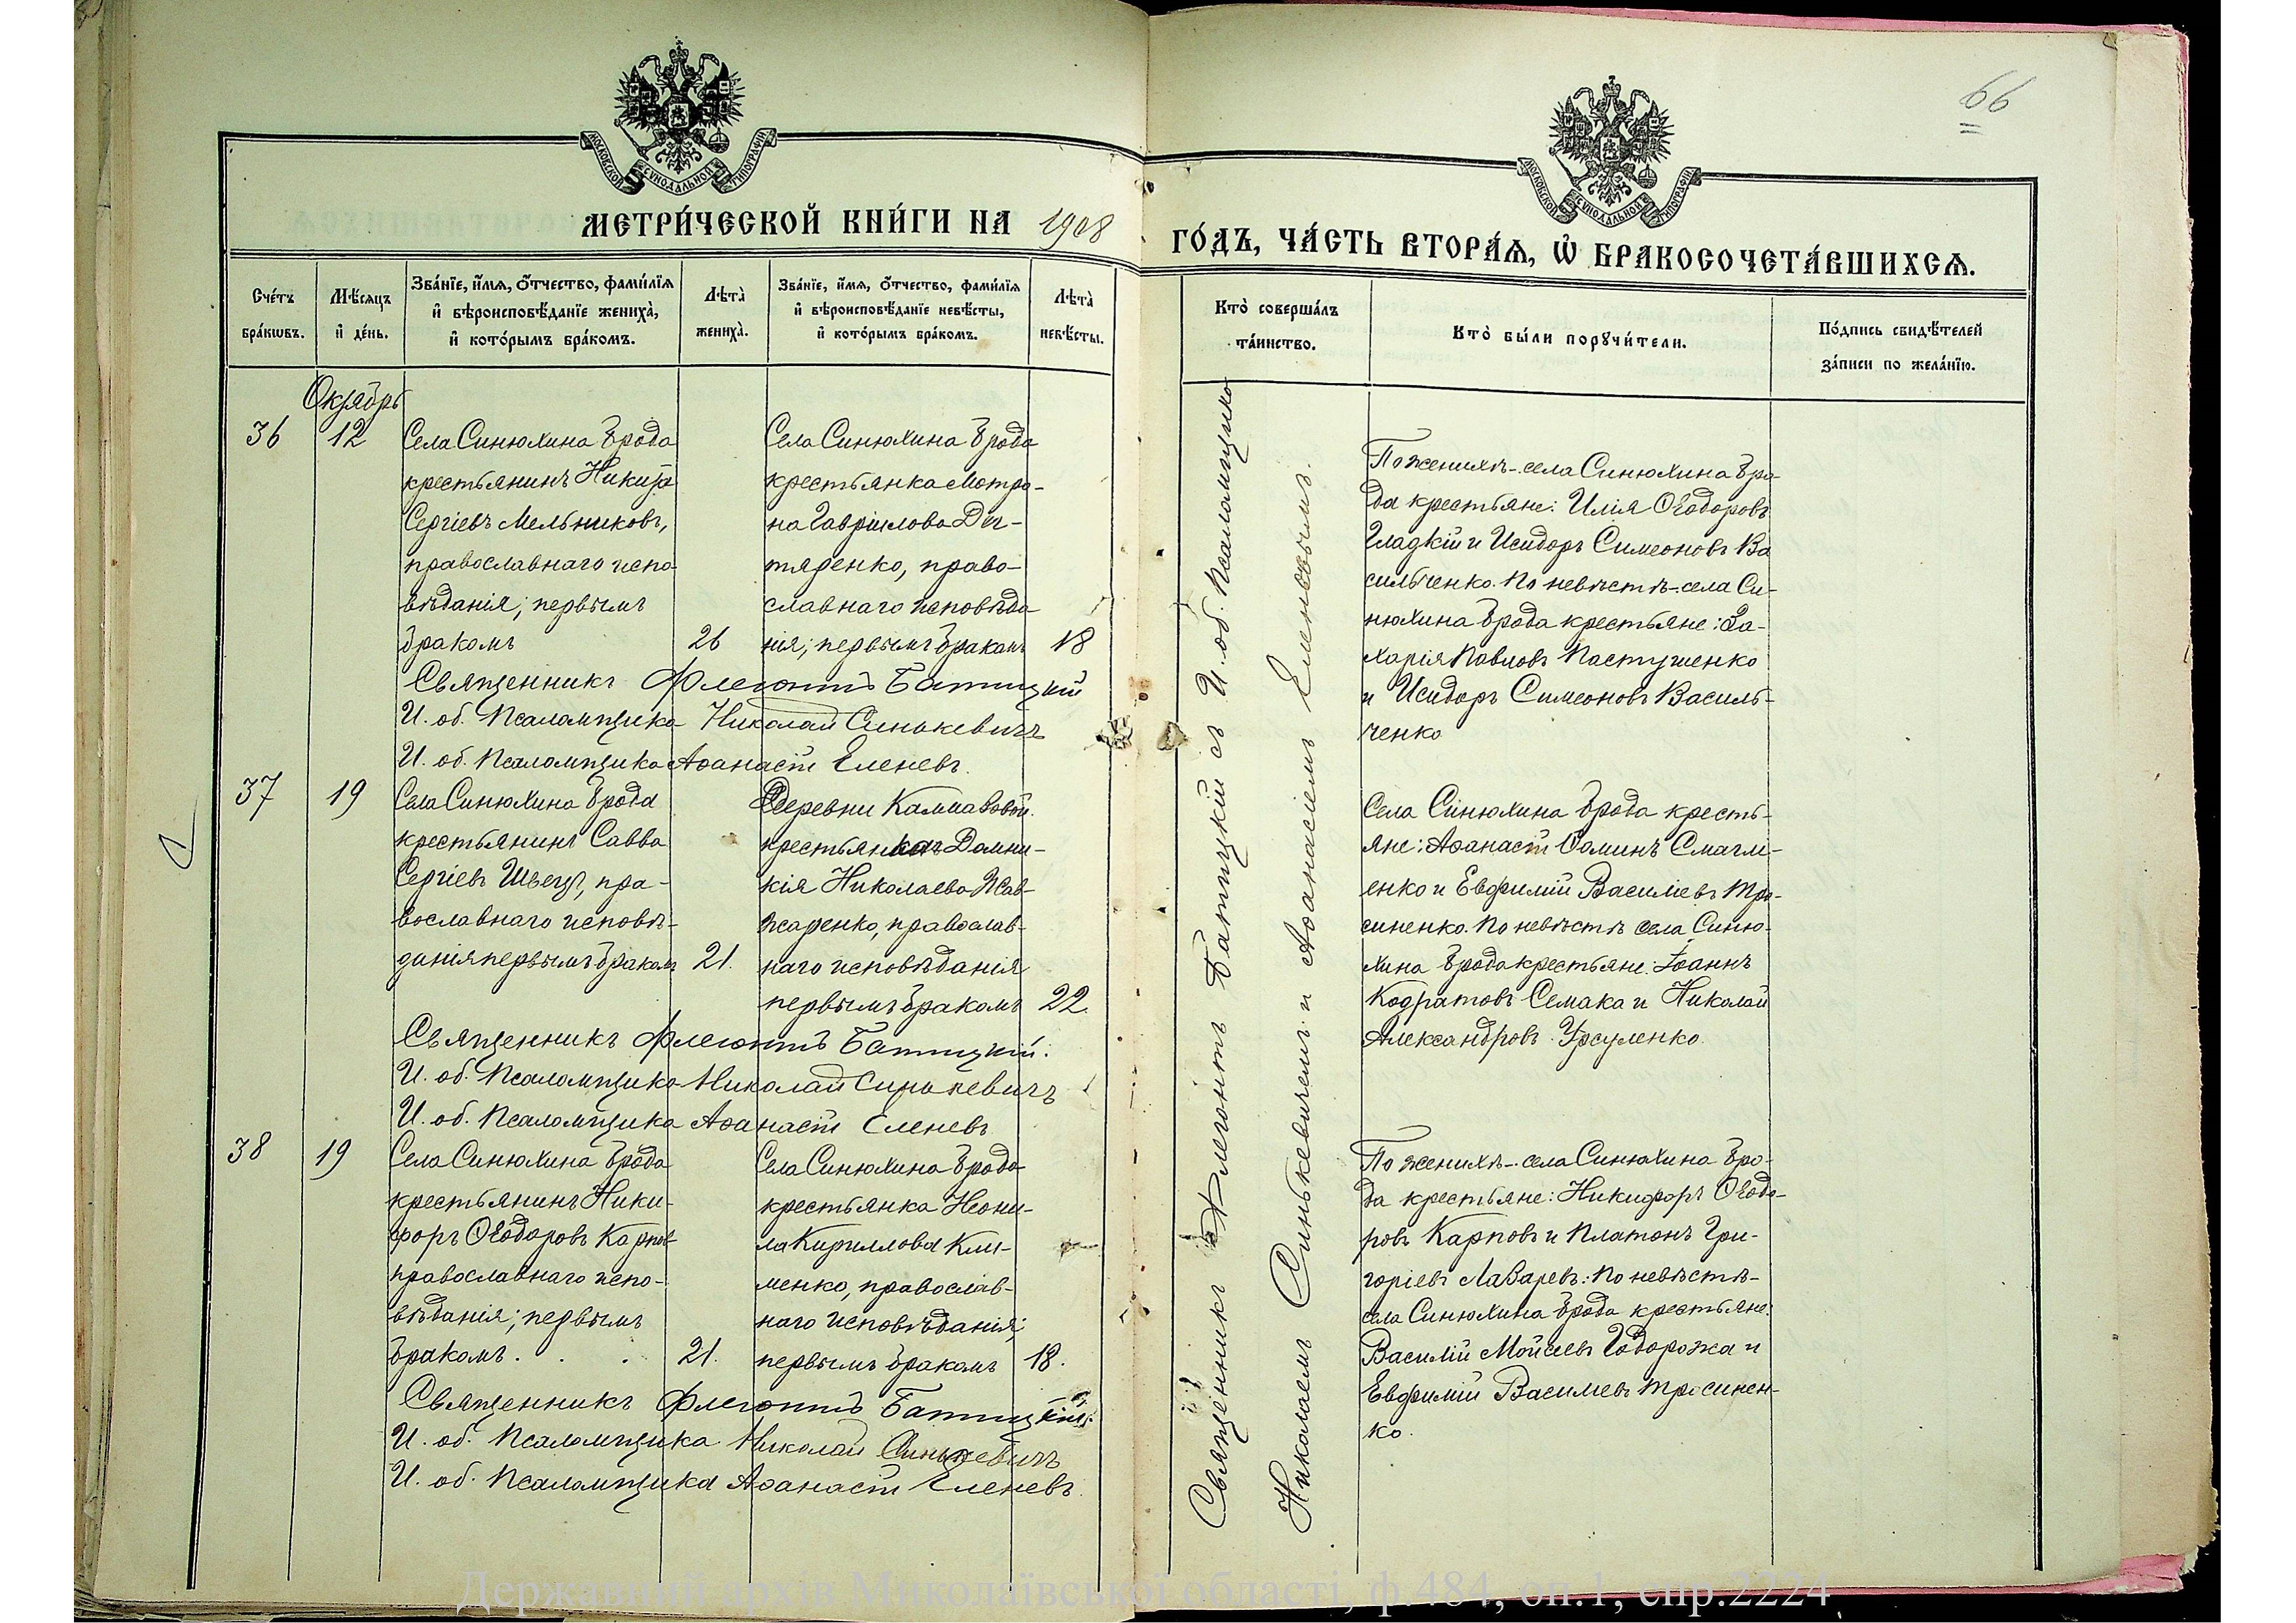 66
МОСКОВСКОЙ СѴНОДАЛЬНОЙ ТИПОГРАФІИ
МОСКОВСКОЙ СѴНОДАЛЬНОЙ ТИПОГРАФІИ
МЕТРИ́ЧЕСКОЙ КНИ́ГИ НА 1908
ГО́ДЪ, ЧА́СТЬ ВТОРА́Ѧ, Ѽ БРАКОСОЧЕТА́ВШИХСѦ.
Сче́тъ
бра́кѡвъ.
Мѣ́сѧцъ
и҆ де́нь.
Зва́нїе, и҆́мѧ, ѻ҆́тчество, фами́лїѧ
и҆ вѣроисповѣ́данїе жениха̀,
и҆ кото́рымъ бра́комъ.
Лѣта̀
жениха̀.
Зва́нїе, и҆́мѧ, ѻ҆́тчество, фами́лїѧ
и҆ вѣроисповѣ́данїе невѣ́сты,
и҆ кото́рымъ бра́комъ.
Лѣта̀
невѣ́сты.
Кто̀ соверша́лъ
та́инство.
Кто̀ бы́ли порꙋчи́тели.
По́дпись свидѣ́телей
за́писи по жела́нїю.
Октябрь
36
12
Села Синюхина Брода
крестьянинъ Никита
Сергіевъ Мельниковъ,
православнаго испо-
вѣданія; первымъ
бракомъ
26
Села Синюхина Брода
крестьянка Мотро-
на Гавріилова Дег-
тяренко, право-
славнаго исповѣда
нія; первымъ бракомъ
18
Священникъ Флегонтъ Батицкій
И. об. Псаломщика Николай Синькевичъ
И. об. Псаломщика Аѳанасій Еленевъ.
37
19
Села Синюхина Брода
крестьянинъ Савва
Сергіевъ Швецъ, пра-
вославнаго исповѣ-
данія первымъ бракомъ
21.
Деревни
крестьянка Домни-
кія Николаева
православ-
наго исповѣданія
первымъ бракомъ
22.
Священникъ Флегонтъ Батицкій.
И. об. Псаломщика Николай Синькевичъ
И. об. Псаломщика Аѳанасій Еленевъ
38
19
Села Синюхина Брода
крестьянинъ Ники-
форъ Ѳеодоровъ Карповъ
православнаго испо-
вѣданія; первымъ
бракомъ . . .
21.
Села Синюхина Брода
крестьянка Неони-
ла Кириллова Кли-
менко, православ-
наго исповѣданія;
первымъ бракомъ
18.
Священникъ Флегонтъ Батицкій.
И. об. Псаломщика Николай Синькевичъ
И. об. Псаломщика Аѳанасій Еленевъ.
Священникъ Флегонтъ Батицкій съ И. об. Псаломщика
Николаемъ Синькевичемъ и Аѳанасіемъ Еленевымъ.
По женихѣ - села Синюхина Бро
да крестьяне: Илія Ѳеодоровъ
Гладкій и Исидоръ Симеоновъ Ва
сильченко. По невѣстѣ - села Си-
нюхина Брода крестьяне: За-
харія Павловъ Пастушенко
и Исидоръ Симеоновъ Василь-
ченко
Села Синюхина Брода кресть-
яне: Аѳанасій Ѳоминъ Смагли-
енко и Евфимій Василіевъ Тро-
синенко. По невѣстѣ села Синю-
хина Брода крестьяне: Іоаннъ
Кодратовъ Семака и Николай
Александровъ Урсуленко.
По женихѣ - села Синюхина Бро-
да крестьяне: Никифоръ Ѳеодо-
ровъ Карповъ и Платонъ Гри-
горіевъ Лазаревъ. По невѣстѣ -
села Синюхина Брода крестьяне:
Василій Мойсеевъ Годорожа и
Евфимій Василіевъ Тросинен-
ко.
Державний архів Миколаївської області, ф.484, оп.1, спр.2224